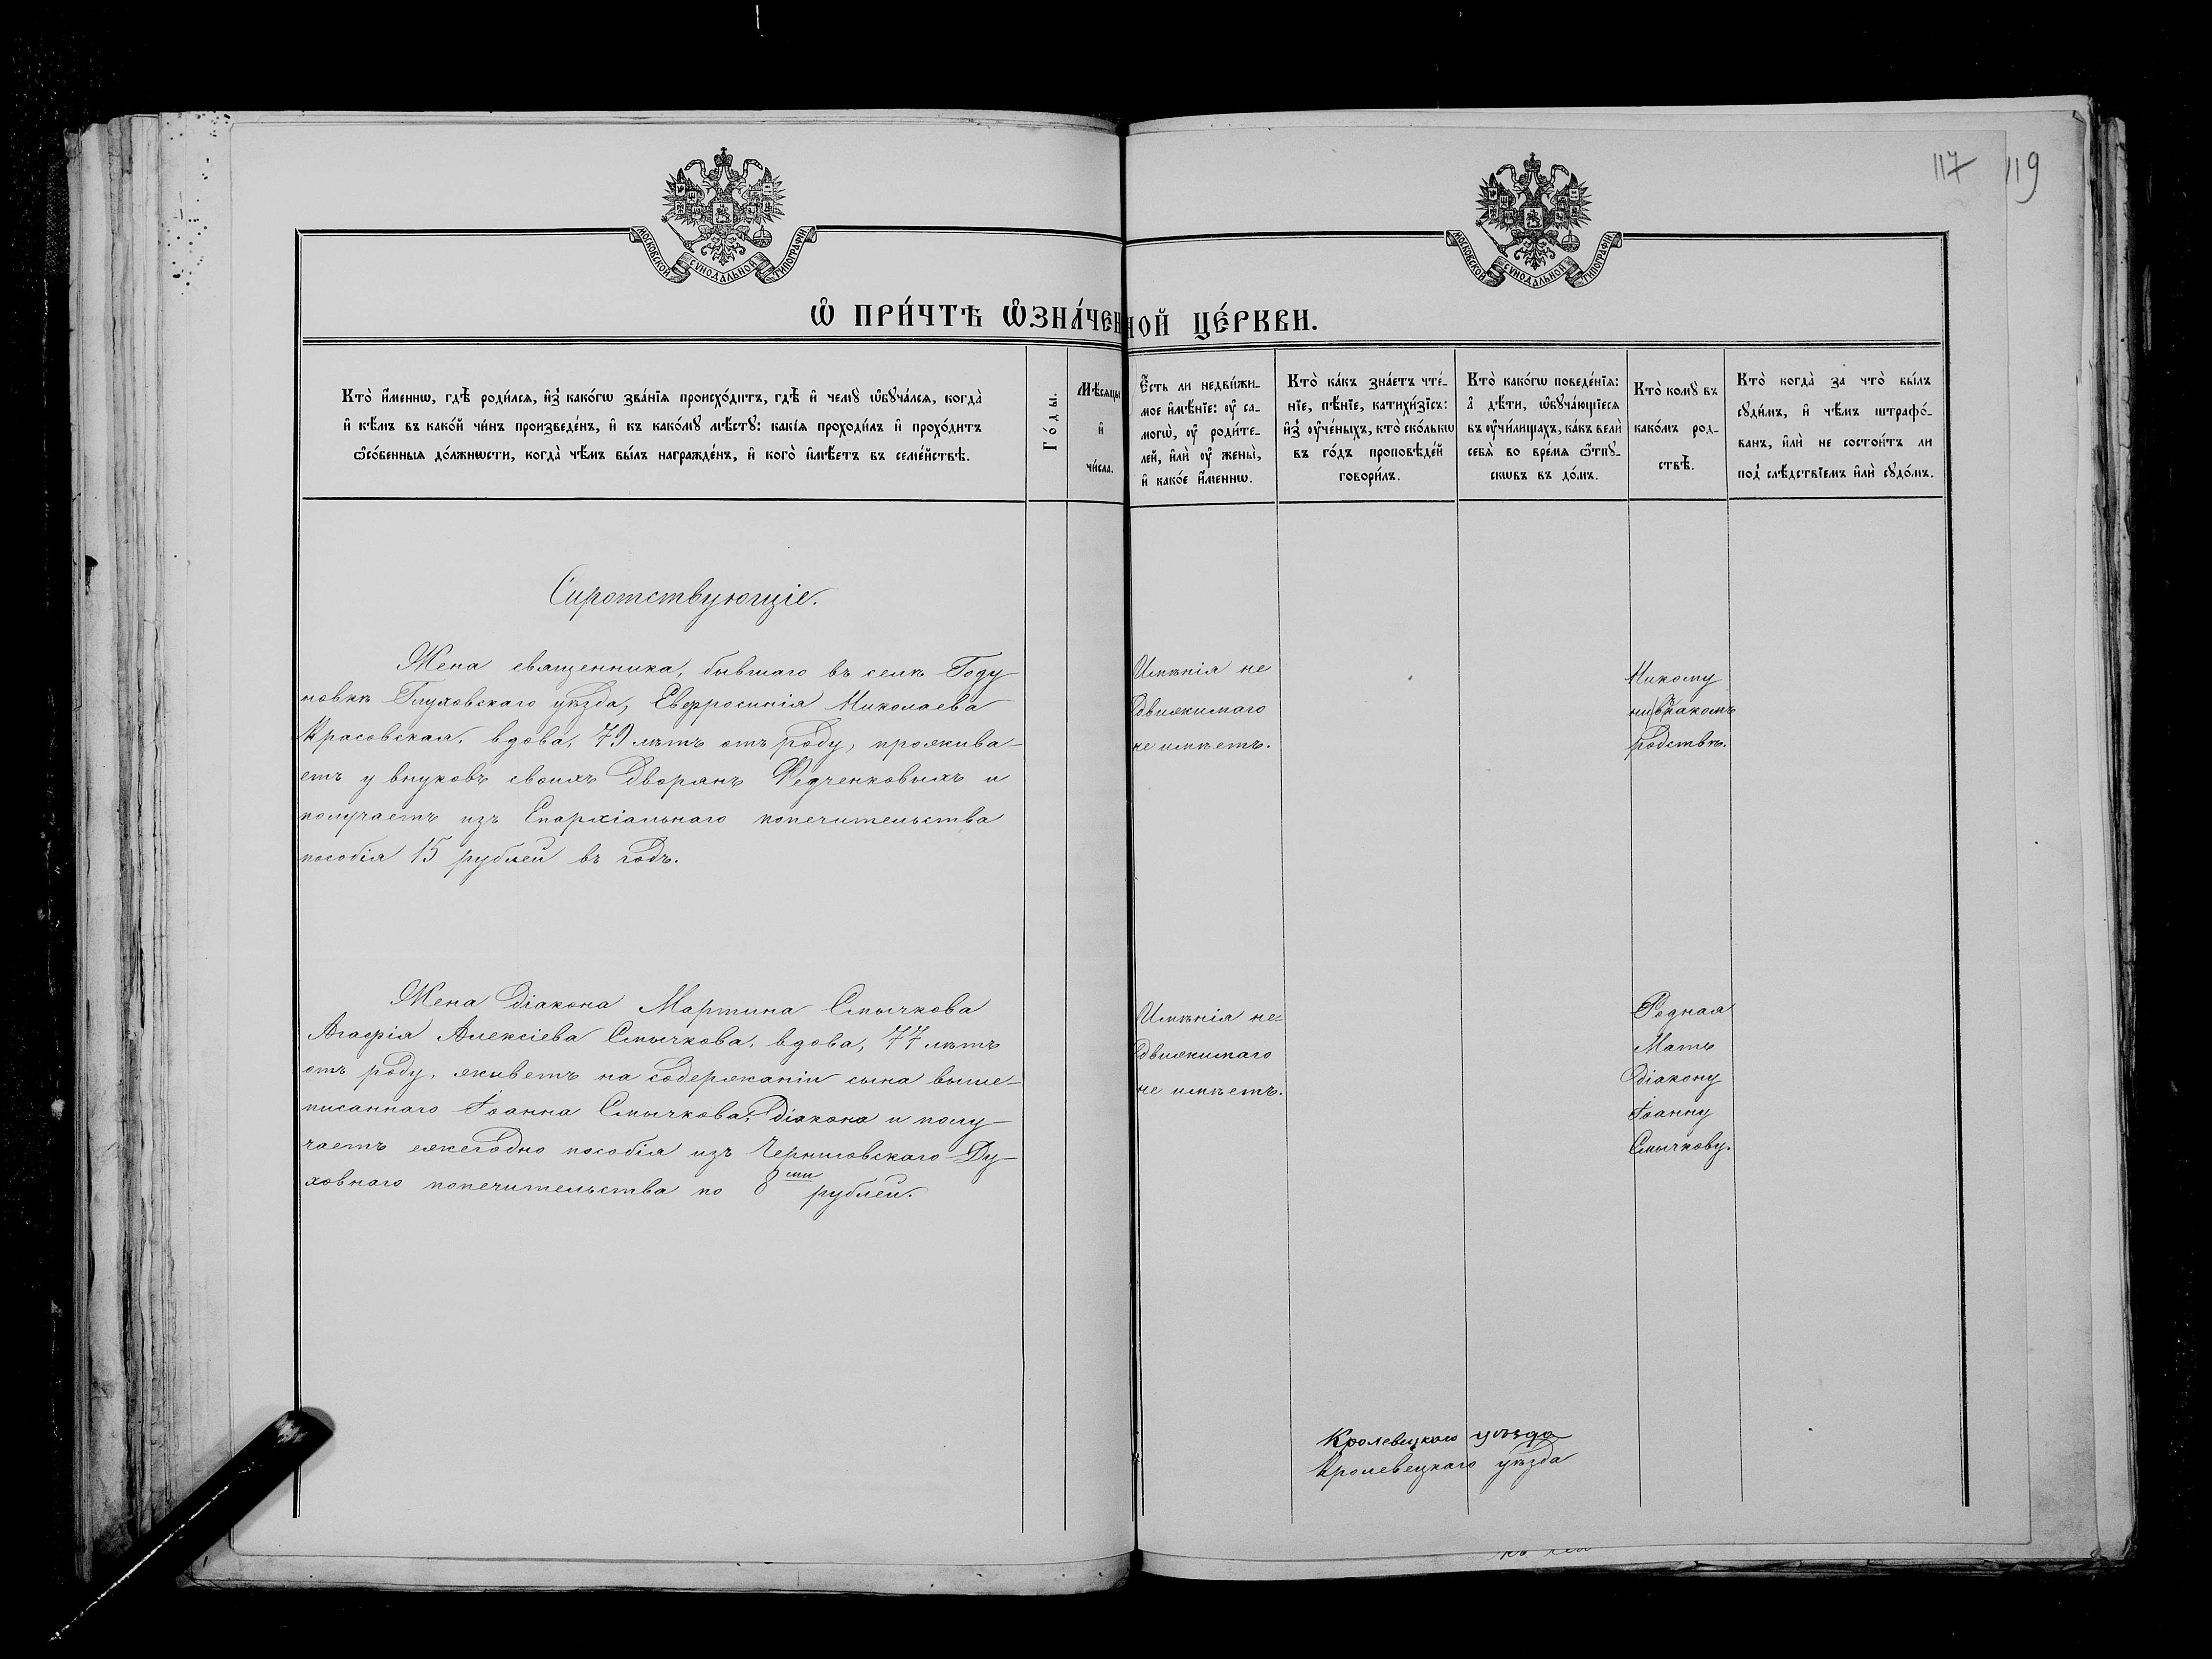 117 119
МОСКОВСКОЙ СѴНОДАЛЬНОЙ ТИПОГРАФІИ
МОСКОВСКОЙ СѴНОДАЛЬНОЙ ТИПОГРАФІИ
Ѽ ПРИ́ЧТѢ Ѽ҆ЗНА́ЧЕННОЙ ЦЕ́РКВИ.
Кто̀ и҆́менно, гдѣ̀ роди́лся, и҆з̾ како́гѡ зва́нїѧ происхо́дитъ, гдѣ̀ и҆ чемꙋ̀ ѡ҆бꙋча́лсѧ, когда̀
и҆ кѣ́мъ въ како́й чи́нъ произведе́нъ, и҆ къ како́мꙋ мѣ́стꙋ: какі́ѧ проходи́лъ и҆ прохо́дитъ
ѻ҆со́бенныѧ до́лжнѡсти, когда̀ чѣ́мъ бы́лъ награжде́нъ, и҆ кого̀ и҆мѣ́етъ въ семе́йствѣ.
Го́ды.
Мѣ́сѧцы
и҆
чи́сла.
Е҆́сть ли недви́жи-
мое и҆мѣ́нїе: ᲂу҆ са-
могѡ̀, ᲂу҆ роди́те-
лей, и҆лѝ ᲂу҆ жены̀,
и҆ како́е и҆́менно.
Кто̀ ка́къ зна́етъ чте́-
нїе, пѣ́нїе, катихи́зїсъ:
и҆з̾ ᲂу҆че́ныхъ, кто̀ ско́лькѡ
въ го́дъ проповѣ́дей
говори́лъ.
Кто̀ како́гѡ поведе́нїѧ:
а҆ дѣ́ти, ѡ҆бꙋча́ющїесѧ
въ ᲂу҆чи́лищахъ, ка́къ велѝ
себѧ̀ во вре́мѧ ѿпꙋ-
скѡвъ въ до́мъ.
Кто̀ комꙋ̀ въ
како́мъ род-
ствѣ̀.
Кто̀ когда̀ за что̀ бы́лъ
сꙋди́мъ, и҆ чѣ́мъ штрафо́-
ванъ, и҆лѝ не состои́тъ ли
под̾ слѣ́дствїемъ и҆лѝ сꙋдо́мъ.
Сиротствующіе.
Жена священника, бывшаго въ селѣ Году
новкѣ Глуховскаго уѣзда, Евфросинія Николаева
Красовская, вдова, 79 лѣтъ отъ роду, прожива-
етъ у внуковъ своихъ Дворянъ Федченковыхъ и
получаетъ изъ Епархіальнаго попечительства
пособія 15 рублей въ годъ.
Имѣнія не
движимаго
не имѣетъ.
Никому
ни въ какомъ
родствѣ.
Жена Діакона Мартина Смычкова
Агафія Алексіева Смычкова, вдова, 77 лѣтъ
отъ роду, живетъ на содержаніи сына выше-
писаннаго Іоанна Смычкова, Діакона и полу-
чаетъ ежегодно пособія изъ Черниговскаго Ду-
ховнаго попечительства по 8ми рублей.
Имѣнія не=
движимаго
не имѣетъ.
Родная
Мать
діакону
Іоанну
Смычкову.
Кролевецкаго уѣзда
Кролевецкаго уѣзда